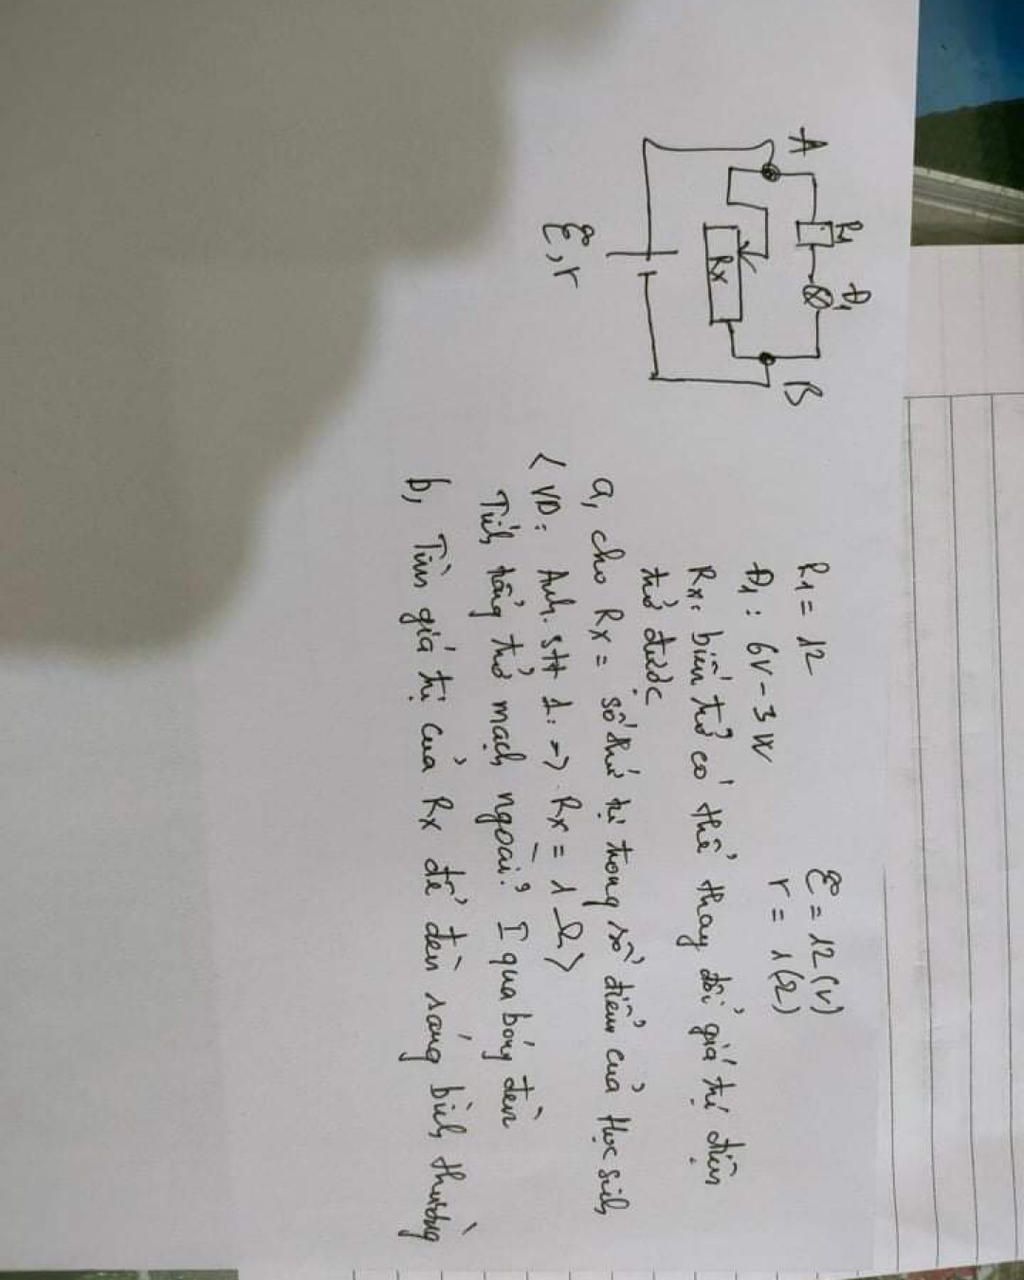 A
R1
Đ1
B
Rx
ξ, r
R1 = 12
ξ = 12 (V)
Đ1 : 6V - 3W
r = 1 (Ω)
Rx: biến trở có thể thay đổi giá trị điện
trở được
a, cho Rx = số thứ tự trong sổ điểm của học sinh
< VD: Anh. STT 1: -> Rx = 1 Ω >
Tính tổng trở mạch ngoài? I qua bóng đèn
b, Tìm giá trị của Rx để đèn sáng bình thường